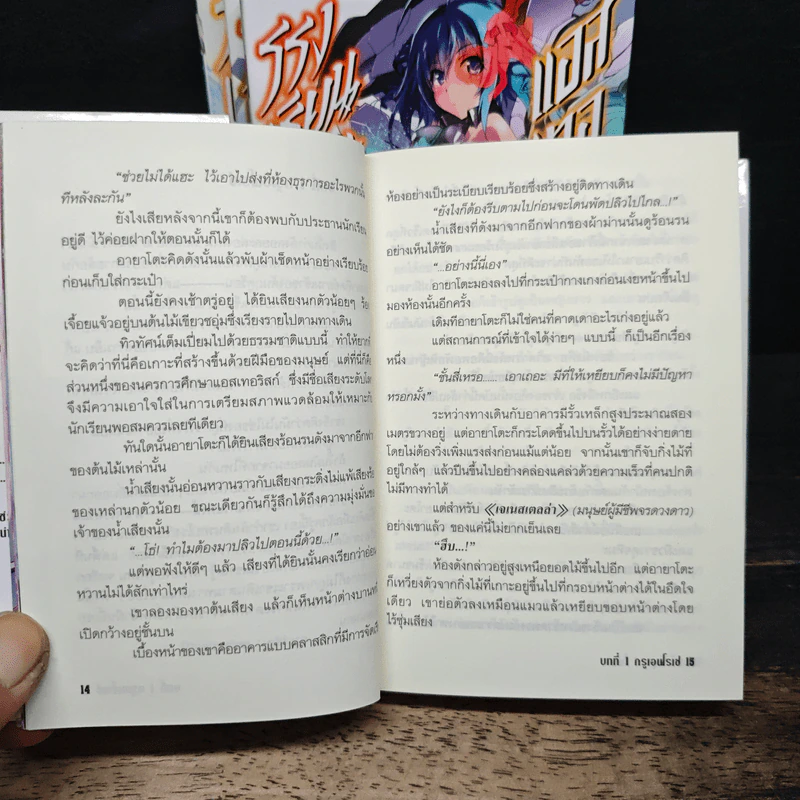 รรง
แอส
“ช่วยไม่ได้แฮะ ไว้เอาไปส่งที่ห้องธุรการอะไรพวกนั้น
ทีหลังละกัน”
ยังไงเสียหลังจากนี้เขาก็ต้องพบกับประธานนักเรียน
อยู่ดี ไว้ค่อยฝากให้ตอนนั้นก็ได้
อายาโตะคิดดังนั้นแล้วพับผ้าเช็ดหน้าอย่างเรียบร้อย
ก่อนเก็บใส่กระเป๋า
ตอนนี้ยังคงเช้าตรู่อยู่ ได้ยินเสียงนกตัวน้อยๆ ร้อง
เจื้อยแจ้วอยู่บนต้นไม้เขียวชอุ่มซึ่งเรียงรายไปตามทางเดิน
ทิวทัศน์เต็มเปี่ยมไปด้วยธรรมชาติแบบนี้ ทำให้ยากที่
จะคิดว่าที่นี่คือเกาะที่สร้างขึ้นด้วยฝีมือของมนุษย์ แต่ที่นี่ก็คือ
ส่วนหนึ่งของนครการศึกษาแอสเทอริสก์ ซึ่งมีชื่อเสียงระดับโลก
จึงมีความเอาใจใส่ในการเตรียมสภาพแวดล้อมให้เหมาะกับ
นักเรียนพอสมควรเลยทีเดียว
ทันใดนั้นอายาโตะก็ได้ยินเสียงร้อนรนดังมาจากอีกฟาก
ของต้นไม้เหล่านั้น
น้ำเสียงนั้นอ่อนหวานราวกับเสียงกระดิ่งไม่แพ้เสียงร้อง
ของเหล่านกตัวน้อย ขณะเดียวกันก็รู้สึกได้ถึงความมุ่งมั่นของ
เจ้าของน้ำเสียงนั้น
“...โธ่! ทำไมต้องมาปลิวไปตอนนี้ด้วย...!”
แต่พอฟังให้ดีๆ แล้ว เสียงที่ได้ยินนั้นคงเรียกว่าอ่อน
หวานไม่ได้สักเท่าไหร่
เขาลองมองหาต้นเสียง แล้วก็เห็นหน้าต่างบานที่
เปิดกว้างอยู่ชั้นบน
เบื้องหน้าของเขาคืออาคารแบบคลาสสิกที่มีการจัดเรียง
14
ห้องอย่างเป็นระเบียบเรียบร้อยซึ่งสร้างอยู่ติดทางเดิน
“ยังไงก็ต้องรีบตามไปก่อนจะโดนพัดปลิวไปไกล...!”
น้ำเสียงที่ดังมาจากอีกฟากของผ้าม่านนั้นดูร้อนรน
อย่างเห็นได้ชัด
“...อย่างนี้นี่เอง”
อายาโตะมองลงไปที่กระเป๋ากางเกงก่อนเงยหน้าขึ้นไป
มองห้องนั้นอีกครั้ง
เดิมทีอายาโตะก็ไม่ใช่คนที่คาดเดาอะไรเก่งอยู่แล้ว
แต่สถานการณ์ที่เข้าใจได้ง่ายๆ แบบนี้ ก็เป็นอีกเรื่อง
หนึ่ง
“ชั้นสี่เหรอ...... เอาเถอะ มีที่ให้เหยียบก็คงไม่มีปัญหา
หรอกมั้ง”
ระหว่างทางเดินกับอาคารมีรั้วเหล็กสูงประมาณสอง
เมตรขวางอยู่ แต่อายาโตะก็กระโดดขึ้นไปบนรั้วได้อย่างง่ายดาย
โดยไม่ต้องวิ่งเพิ่มแรงส่งก่อนแม้แต่น้อย จากนั้นเขาก็จับกิ่งไม้ที่
อยู่ใกล้ๆ แล้วปีนขึ้นไปอย่างคล่องแคล่วด้วยความเร็วที่คนปกติ
ไม่มีทางทำได้
แต่สำหรับ 《เจเนสเตลล่า》 (มนุษย์ผู้มีชีพจรดวงดาว)
อย่างเขาแล้ว ของแค่นี้ไม่ยากเย็นเลย
“ฮึบ...!”
ห้องดังกล่าวอยู่สูงเหนือยอดไม้ขึ้นไปอีก แต่อายาโตะ
ก็เหวี่ยงตัวจากกิ่งไม้ที่เกาะอยู่ขึ้นไปที่กรอบหน้าต่างได้ในอึดใจ
เดียว เขาย่อตัวลงเหมือนแมวแล้วเหยียบขอบหน้าต่างโดย
ไร้ซุ่มเสียง
บทที่ 1 กรูเอนโรเซ่ 15